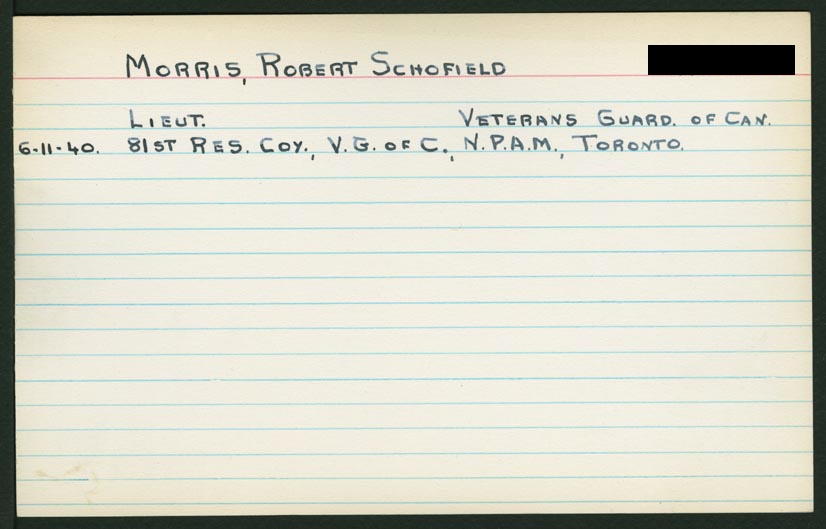 MORRIS, ROBERT SCHOFIELD
LIEUT. VETERANS GUARD. OF CAN.
6-11-40. 81ST RES. COY., V.G. OF C., N.P.A.M., TORONTO.